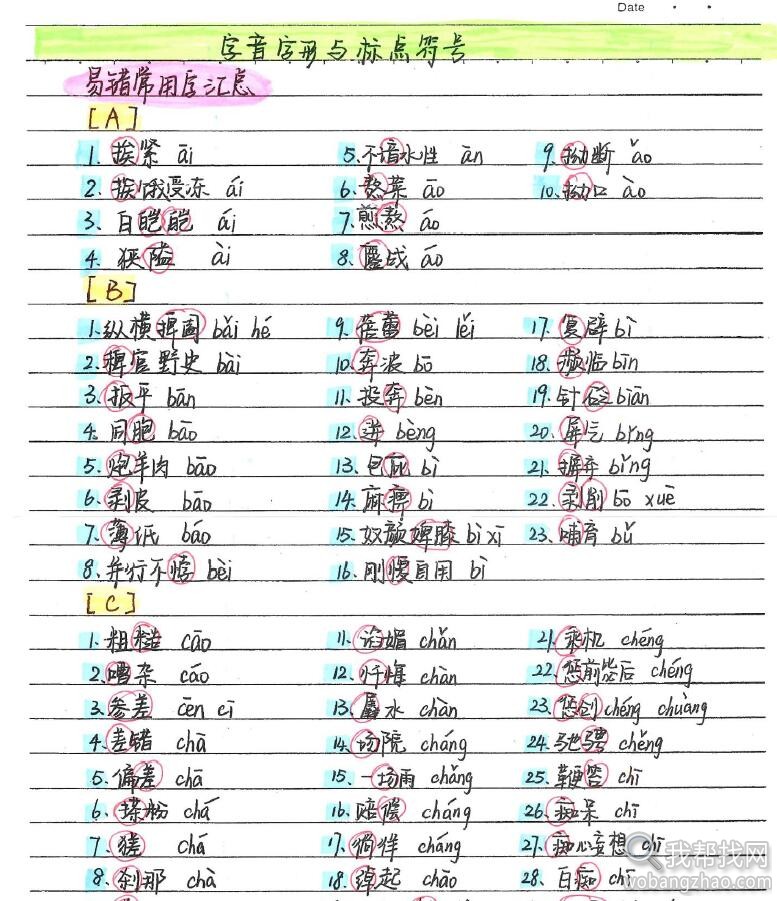 Date · ·
字音字形与标点符号
易错常用字汇总
[A]
1. 挨紧 āi
5. 不谙水性 ān
9. 拗断 ǎo
2. 挨饿受冻 ái
6. 熬菜 āo
10. 拗口 ào
3. 白皑皑 ái
7. 煎熬 áo
4. 狭隘 ài
8. 鏖战 áo
[B]
1. 纵横捭阖 bǎi hé
9. 蓓蕾 bèi lěi
17. 复辟 bì
2. 稗官野史 bài
10. 奔波 bō
18. 濒临 bīn
3. 扳平 bān
11. 投奔 bèn
19. 针砭 biān
4. 同胞 bāo
12. 迸 bèng
20. 屏气 bǐng
5. 炮羊肉 bāo
13. 包庇 bì
21. 摒弃 bǐng
6. 剥皮 bāo
14. 麻痹 bì
22. 剥削 bō xuē
7. 薄纸 báo
15. 奴颜婢膝 bì xī
23. 哺育 bǔ
8. 并行不悖 bèi
16. 刚愎自用 bì
[C]
1. 粗糙 cāo
11. 谄媚 chǎn
21. 乘机 chéng
2. 嘈杂 cáo
12. 忏悔 chàn
22. 惩前毖后 chéng
3. 参差 cēn cī
13. 羼水 chàn
23. 惩创 chéng chuàng
4. 差错 chā
14. 场院 cháng
24. 驰骋 chěng
5. 偏差 chā
15. 一场雨 cháng
25. 鞭笞 chī
6. 搽粉 chá
16. 赔偿 cháng
26. 痴呆 chī
7. 猹 chá
17. 徜徉 cháng
27. 痴心妄想 chī
8. 刹那 chà
18. 绰起 chāo
28. 白痴 chī
我帮找网
wobangzhao.com